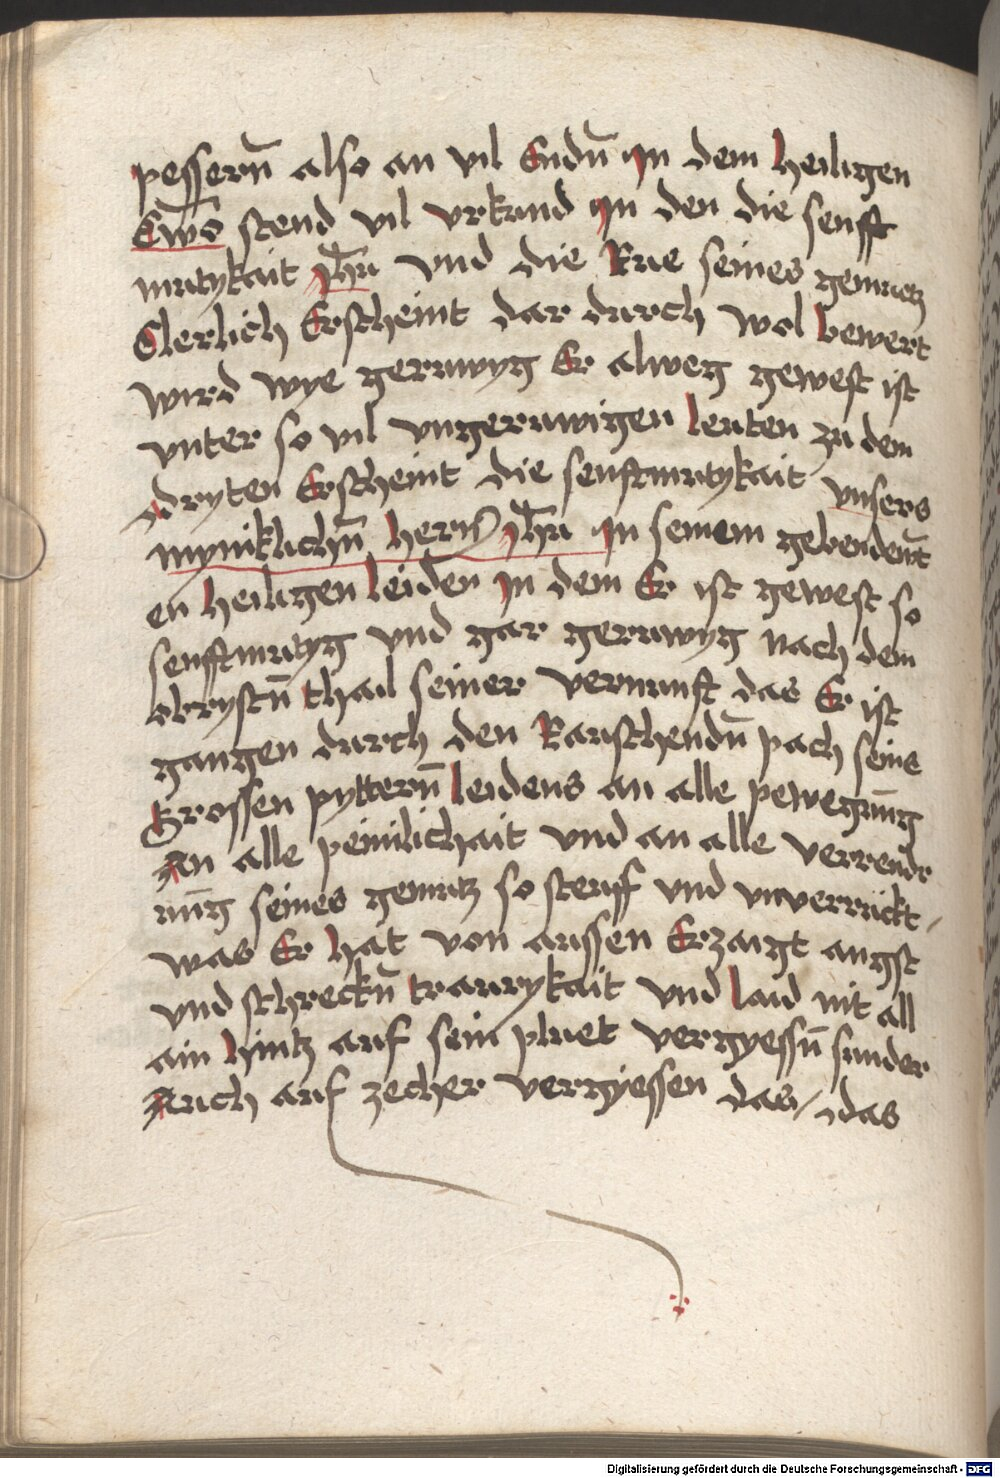 pessern̄ also an vil Endn̄ Jn dem heiligen
Ewō stend vil vrkund Jn den die senfft
mutykait Jhū vnd die Rue seines gemuetz
Clerlich Erscheint dar durch wol bewert
wird wye geruwyg Er alweg gewest ist
vnter so vil vngeruwigen leuten zu dem
dryten Erscheint die senftmutykait vnsers
myniklichn̄ hern Jhū Jn seinem gebendeit̄
en heiligen leiden Jn dem Er ist gewest so
senfftmutyg vnd gar geruwyg nach dem
obrystn̄ thail seiner vernunft das Er ist
gangen durch den Rauschendn̄ pach seins
Grossen pyttern̄ leidens an alle pewegun̄g
An alle peinlichait vnd an alle verendr
un̄g seines gemutz so steuff vnd vnverruckt /
was Er hat von aussen Erzaigt angst
vnd schreckn̄ traurykait vnd laid nit all
ain hintz auf sein pluet vergyessn̄ sunder
Auch auf zecher vergyessen das / das
Digitalisierung gefördert durch die Deutsche Forschungsgemeinschaft - DFG